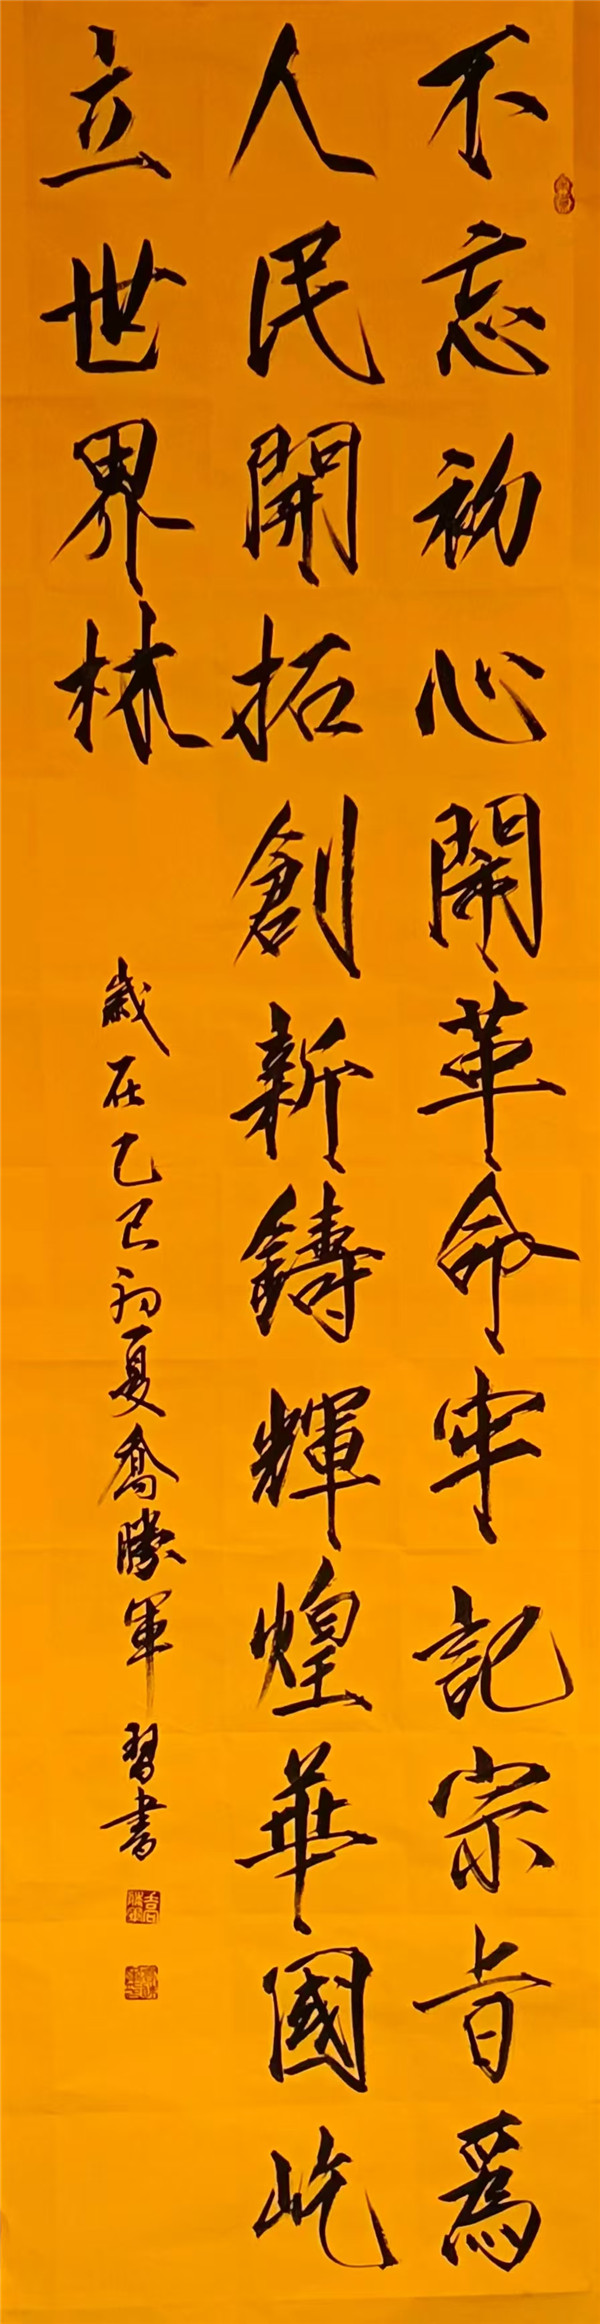 不忘初心鬧革命牢記宗旨爲
人民開拓創新鑄輝煌華國屹
立世界林
歲在乙巳初夏喬勝軍習書